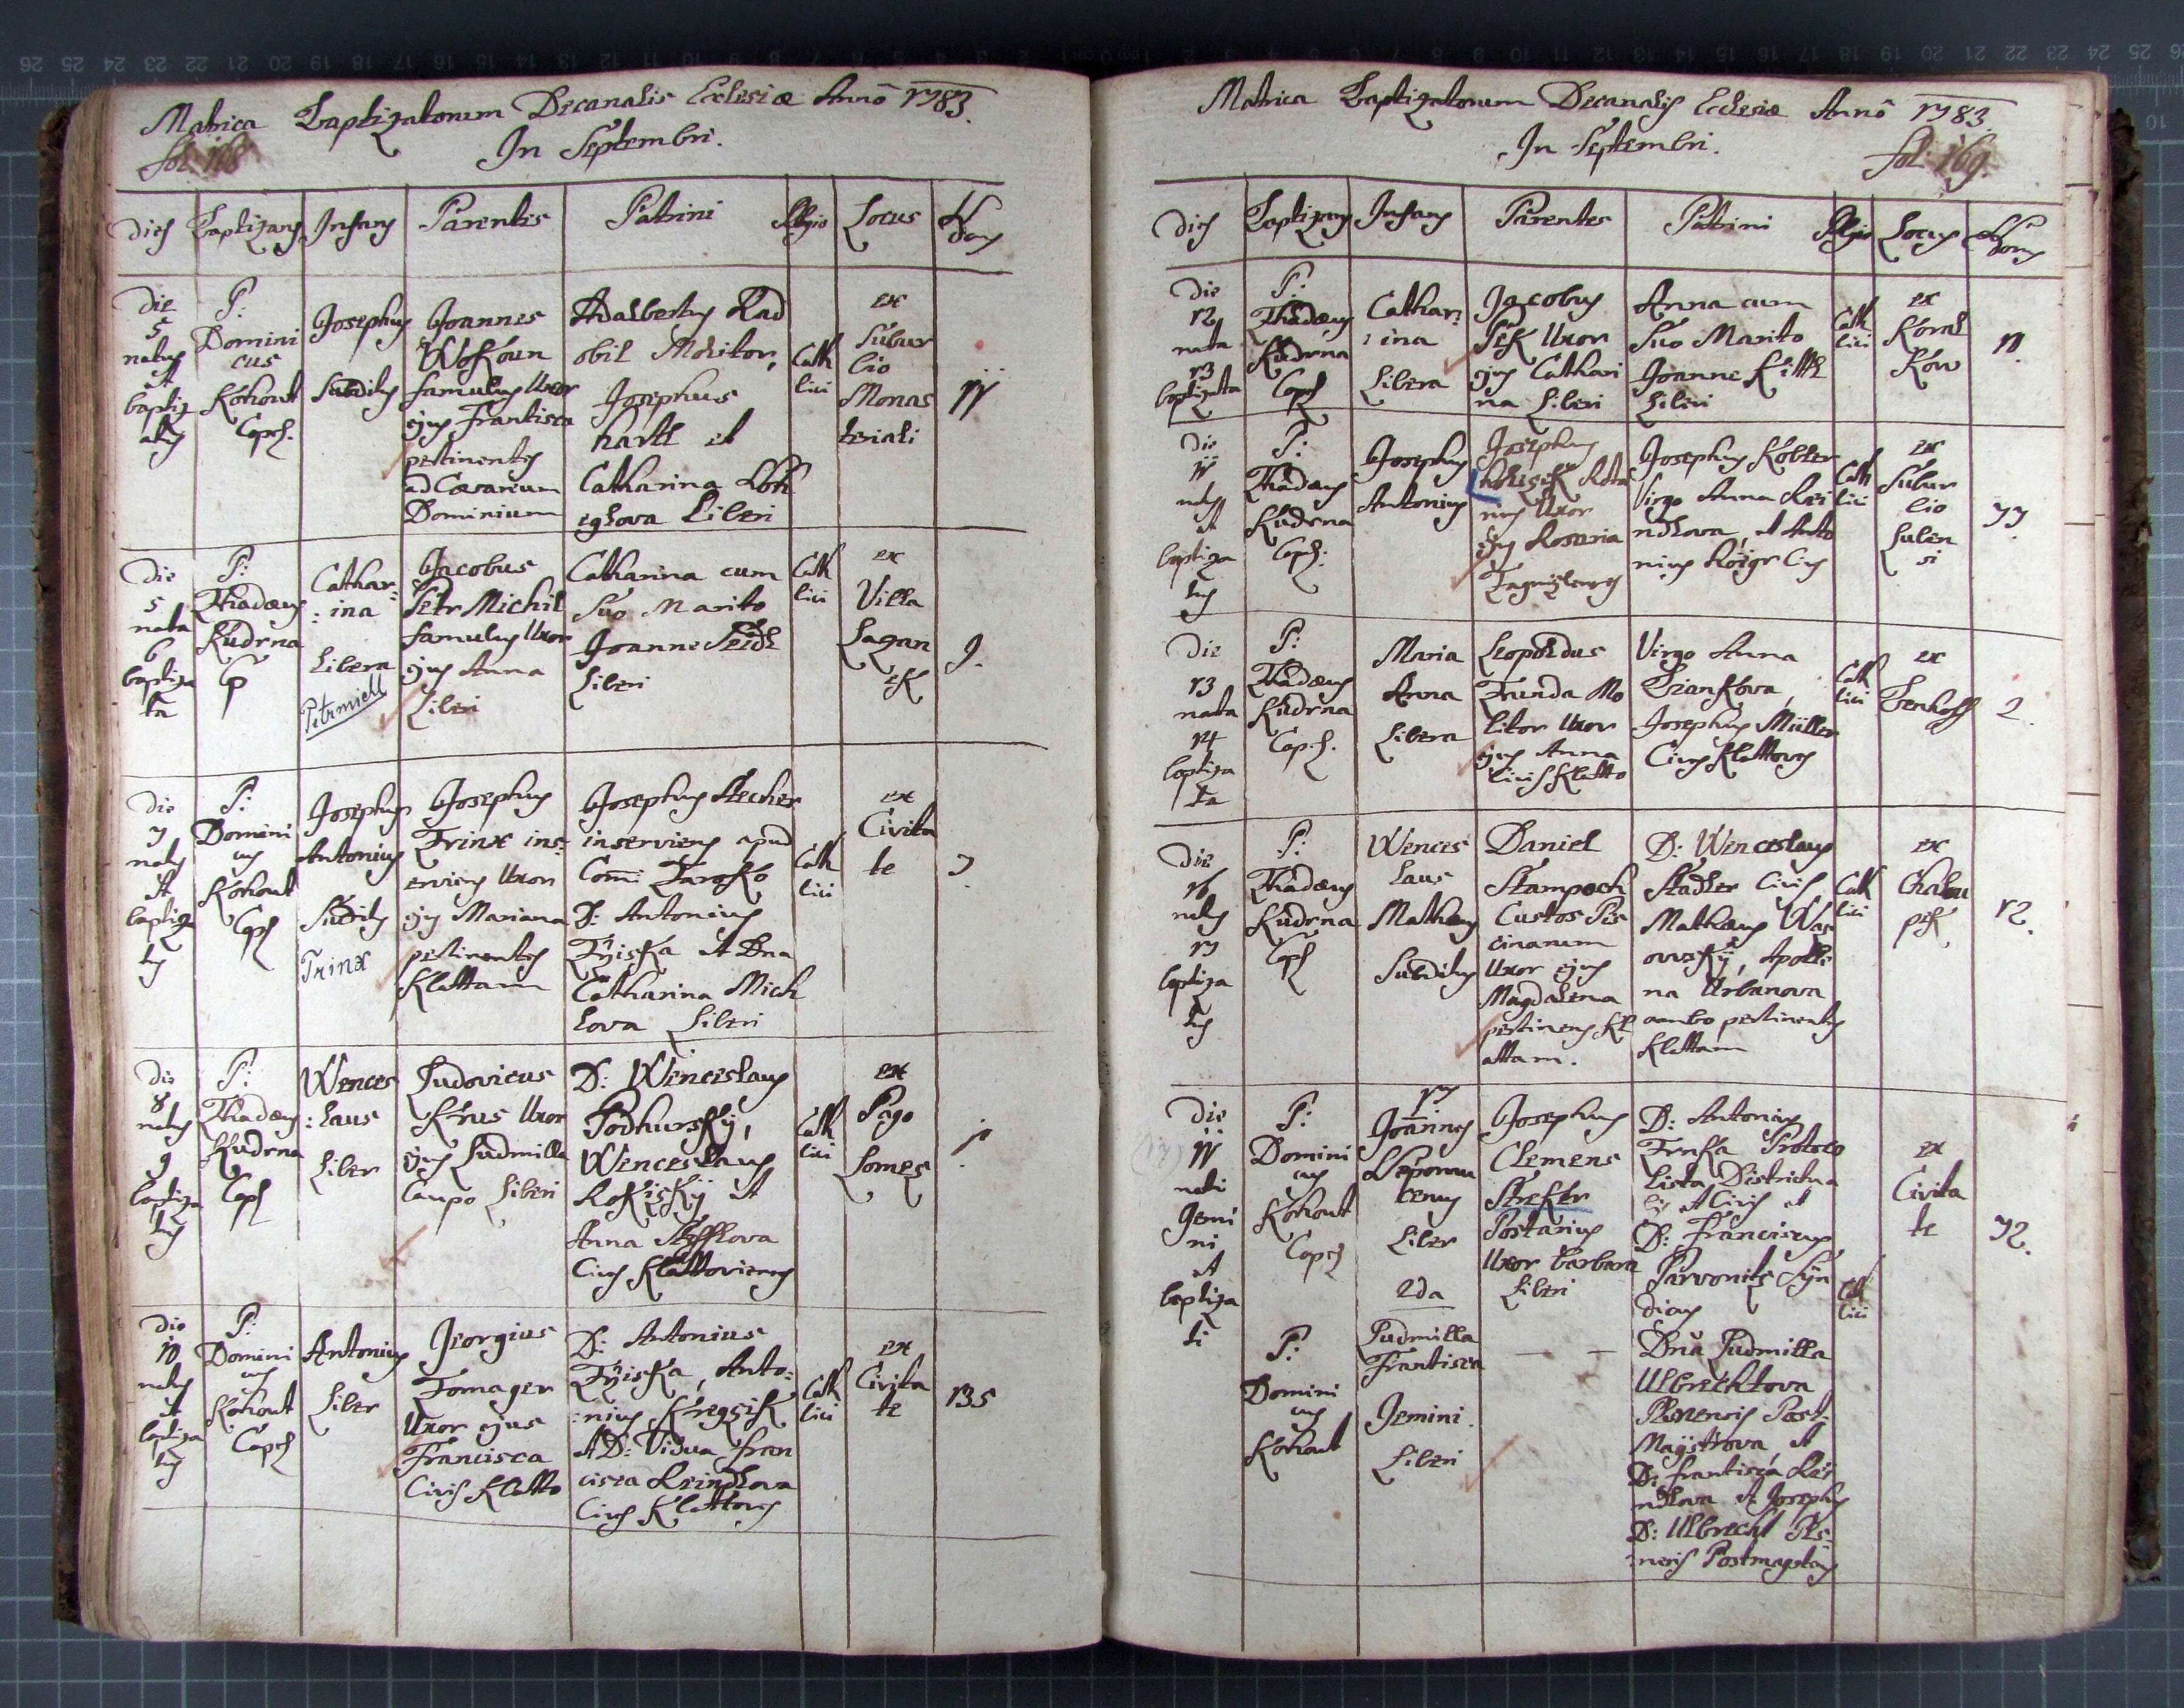 Matrica Baptizatorum Decanalis Eclesiæ Anno 1783.
fol. 168
In Septembri.
Dies Baptizans Infans Parentes Patrini Rligio Locus N Dom
die
5
natus
et
baptiz
atus
P:
Domini
cus
Kohout
Capel.
Josephus
Subditus
Joannes
Wokoun
famulus Uxor
ejus Frantisca
pertinentes
ad Cæsareum
Dominium
Adalbertus Rad
obil Molitor,
Josephus
hartl et
Catharina
Liberi
Cath
lici
ex
Subur
bio
Monas
teriali
die
5
nata
6
baptiza
ta
P:
Thadæus
Kudrna
Cp
Cathar:
:ina
Libera
Petrmichl
Jacobus
Petr Michil
famulus Uxor
ejus Anna
Liberi
Catharina cum
Suo Marito
Joanne Seidl
Liberi
Cath
lici
ex
Villa
Lagan
ek
9.
die
7
natus
et
baptiza
tus
P:
Domini
cus
Kohout
Capl
Josephus
Antonius
Subditus
Trinx
Josephus
Trinx ins:
erviens Uxor
ejus Mariana
pertinentes
Klattam
Josephus Stecher
inserviens apud
Com: Taroko
D: Antonius
Fyiska et Dna
Catharina Mich
lova Liberi
Cath
lici
ex
Civita
te
7
die
8
natus
9
baptiza
tus
P:
Thadæus
Kudrna
Capl
Wences
:laus
Liber
Ludovicus
Krus Uxor
ejus Ludmilla
Caupo Liberi
D: Wenceslaus
Podhurskÿ,
Wenceslaus
Rokiskÿ et
Anna
Cives Klattovienses
Cath
lici
ex
Pago
Lomes
die
10
natus
et
baptiza
tus
P:
Domini
cus
Kohout
Capel
Antonius
Liber
Georgius
Tomager
Uxor ejus
Francisca
Cives Klatto
D: Antonius
Fyiska, Anto:
:nius Kregzik
et D: Vidua Fran
cisca Reindlova
Cives Klattovs
Cath
lici
ex
Civita
te
135
Matrica Baptizatorum Decanalis Ecclesiæ Anno 1783.
In Septembri.
fol. 169.
Dies Baptizans Infans Parentes Patrini Rligio Locus Doms
die
12
nata
13
baptizata
P:
Thadæus
Kudrna
Capl
Cathar:
:ina
Libera
Jacobus
Pek Uxor
ejus Cathari
na Liberi
Anna cum
Suo Marito
Joanne Kittl
Liberi
Cath
lici
ex
Koral
Kow
11.
die
natus
et
baptiza
tus
P:
Thadæus
Kudrna
Capl:
Josephus
Antonius
Josephus
Uxor
ejus Rosaria
Josephus Kobler
Virgo Anna Rei
ndlova, et Anto
nius Cives
Cath
lici
ex
Subur
bio
Luben
si
77
die
13
nata
14
baptiza
ta
P:
Thadæus
Kudrna
Cap.l.
Maria
Anna
Libera
Leopoldus
Trunda Mo
litor Uxor
ejus Anna
Cives Klatto
Virgo Anna
Ziankova,
Josephus Müller
Cives Klattovs
Cath
lici
ex
Tenhoff
2.
die
16
natus
17
baptiza
tus
P:
Thadæus
Kudrna
Capl
Wences
laus
Mathæus
Subditus
Daniel
Stampach
Custos Pis
cinarum
Uxor ejus
Magdalena
pertinens Kl
attam.
D: Wenceslaus
Stadler Civis,
Mathæus Was
owskÿ, Apollo
na Urbanova
ambo pertinentes
Klattam
Cath
lici
ex
Chalou
pek
12.
die
17
nati
Gemi
ni
et
baptiza
ti
P:
Domini
cus
Kohout
Capel
1.
Joannes
Nepomu
cenus
Liber
2da
Ludmilla
Frantisca
Gemini.
Liberi
P:
Domini
cus
Kohout
Josephus
Clemens
Strekr
Postarius
Uxor Barbara
Liberi
D: Antonius
Trnka Protoco
lista Districtua
lis et Civis et
D: Franciscus
Parvonitz Syn
dicus
Dna Ludmilla
Ulbrechtova
Plsnensis Post
Maÿstrova et
D: Frantisca Rei
ndlova et Josephus
D: Ulbrecht Pls
:nensis Postmaystr
Cath
lici
ex
Civita
te
72.